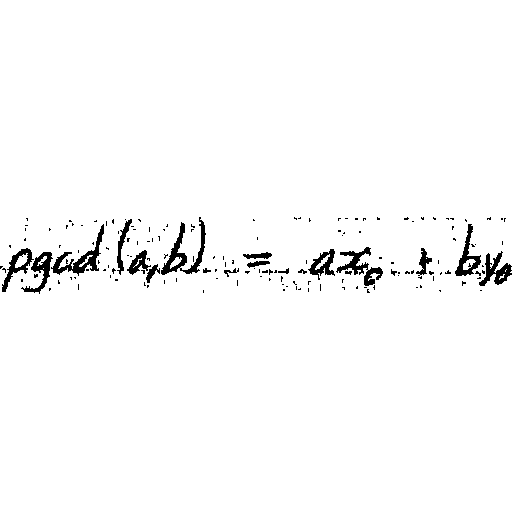 pgcd(a,b) = ax₀ + by₀